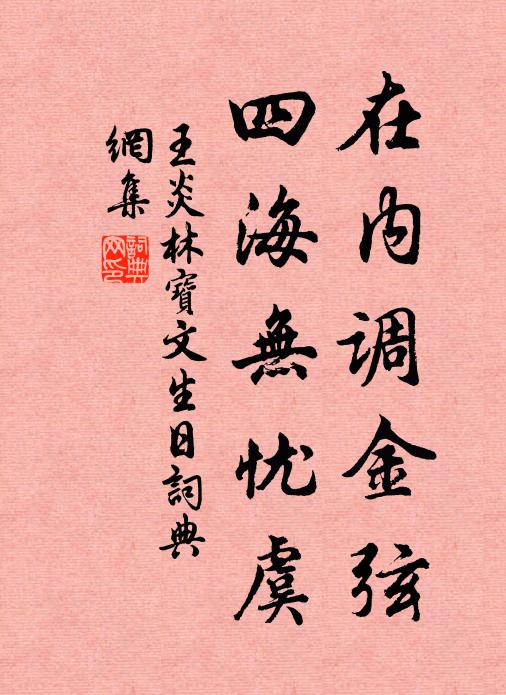 在内调金弦
四海無忧虞
王炎林寶文生日詞典
網集
詞典
网印